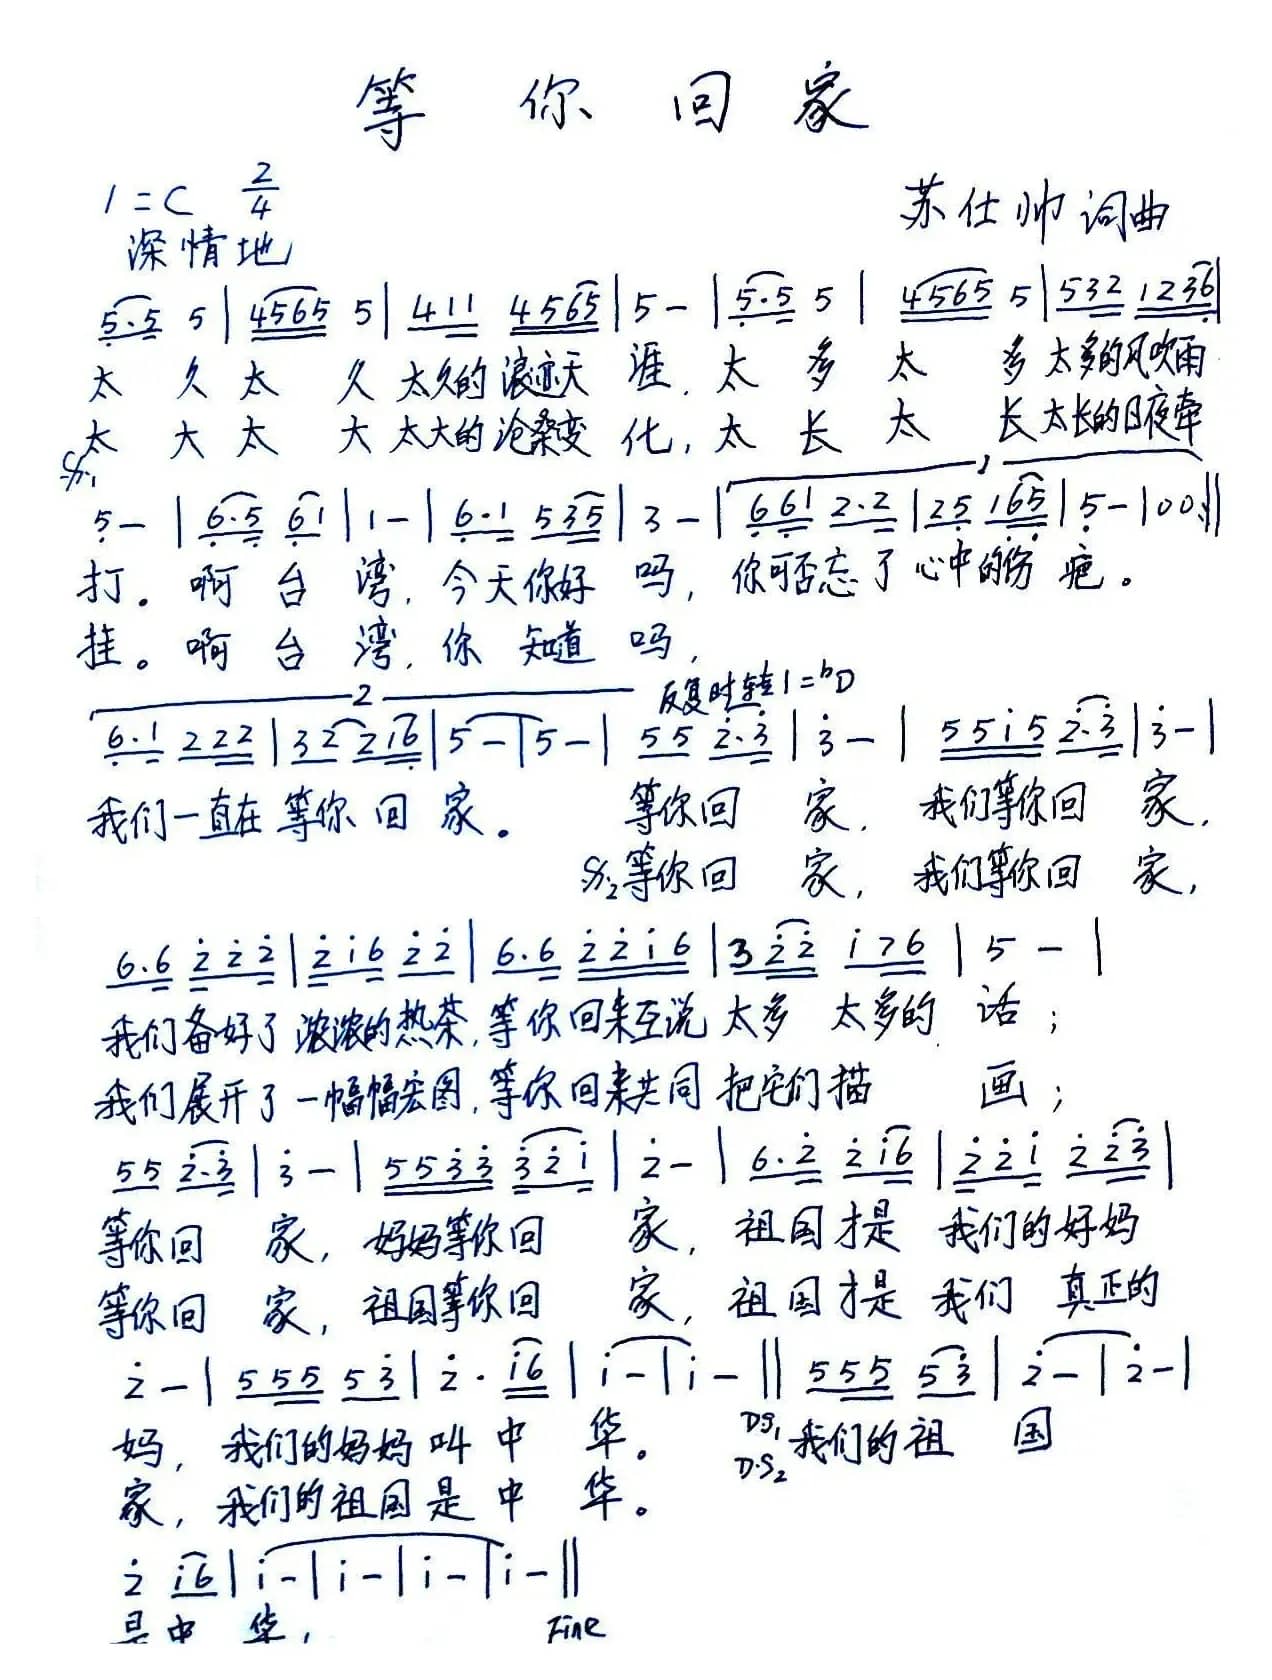 等你回家
1=C 2/4
苏仕帅 词曲
深情地
5.5 5 | 4565 5 | 411 4565 | 5 - | 5.5 5 | 4565 5 | 532 1236 |
太 久 太 久 太久的浪迹天 涯, 太 多 太 多 太多的风吹雨
太 大 太 大 太大的沧桑变 化, 太 长 太 长 太长的日夜牵
5 - | 6.5 61 | 1 - | 6.1 535 | 3 - | 661 2.2 | 25 165 | 5 - | 00 :||
打。啊 台 湾, 今天你好 吗, 你可否忘了心中的伤 疤。
挂。啊 台 湾, 你 知道 吗,
2 反复时转1=bD
6.1 222 | 32 216 | 5 - | 5 - | 55 2.3 | 3 - | 5515 2.3 | 3 - |
我们一直在 等你 回 家。 等你回 家, 我们等你回 家,
等你回 家, 我们等你回 家,
6.6 222 | 216 22 | 6.6 2216 | 322 176 | 5 - |
我们备好了 浓浓的热茶, 等你回来互说 太多 太多的 话;
我们展开了一幅幅宏图, 等你回来共同 把它们描 画;
55 2.3 | 3 - | 5533 321 | 2 - | 6.2 216 | 221 223 |
等你回 家, 妈妈等你回 家, 祖国才是 我们的好妈
等你回 家, 祖国等你回 家, 祖国才是 我们 真正的
2 - | 555 53 | 2. 16 | 1 - | 1 - || 555 53 | 2 - | 2 - |
妈, 我们的妈妈 叫 中 华。 DS1 我们的祖 国
家, 我们的祖国是 中 华。 D.S2
2 16 | 1 - | 1 - | 1 - | 1 - ||
是中 华, Fine